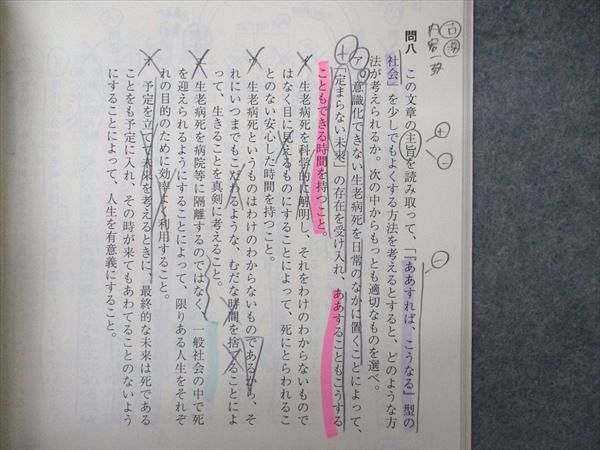 問八 この文章の主旨を読み取って、「『ああすれば、こうなる』型の
社会」を少しでもよくする方法を考えるとすると、どのような方
法が考えられるか。次の中からもっとも適切なものを選べ。
ア 意識化できない生老病死を日常のなかに置くことによって、
「定まらない未来」の存在を受け入れ、ああすることもこうする
こともできる時間を持つこと。
イ 生老病死を科学的に解明し、それをわけのわからないもので
はなく目に見えるものにすることによって、死にとらわれるこ
とのない安心した時間を持つこと。
ウ 生老病死というものはわけのわからないものであるから、そ
れにいつまでもこだわるような、むだな時間を捨てることによ
って、生きることを真剣に考えること。
エ 生老病死を病院等に隔離するのではなく、一般社会の中で死
を迎えられるようにすることによって、限りある人生をそれぞ
れの目的のために効率よく利用すること。
オ 予定を立てて未来を考えるときに、最終的な未来は死である
ことをも予定に入れ、その時が来てもあわてることのないよう
にすることによって、人生を有意義にすること。
内容一致
＋
－
－
＋